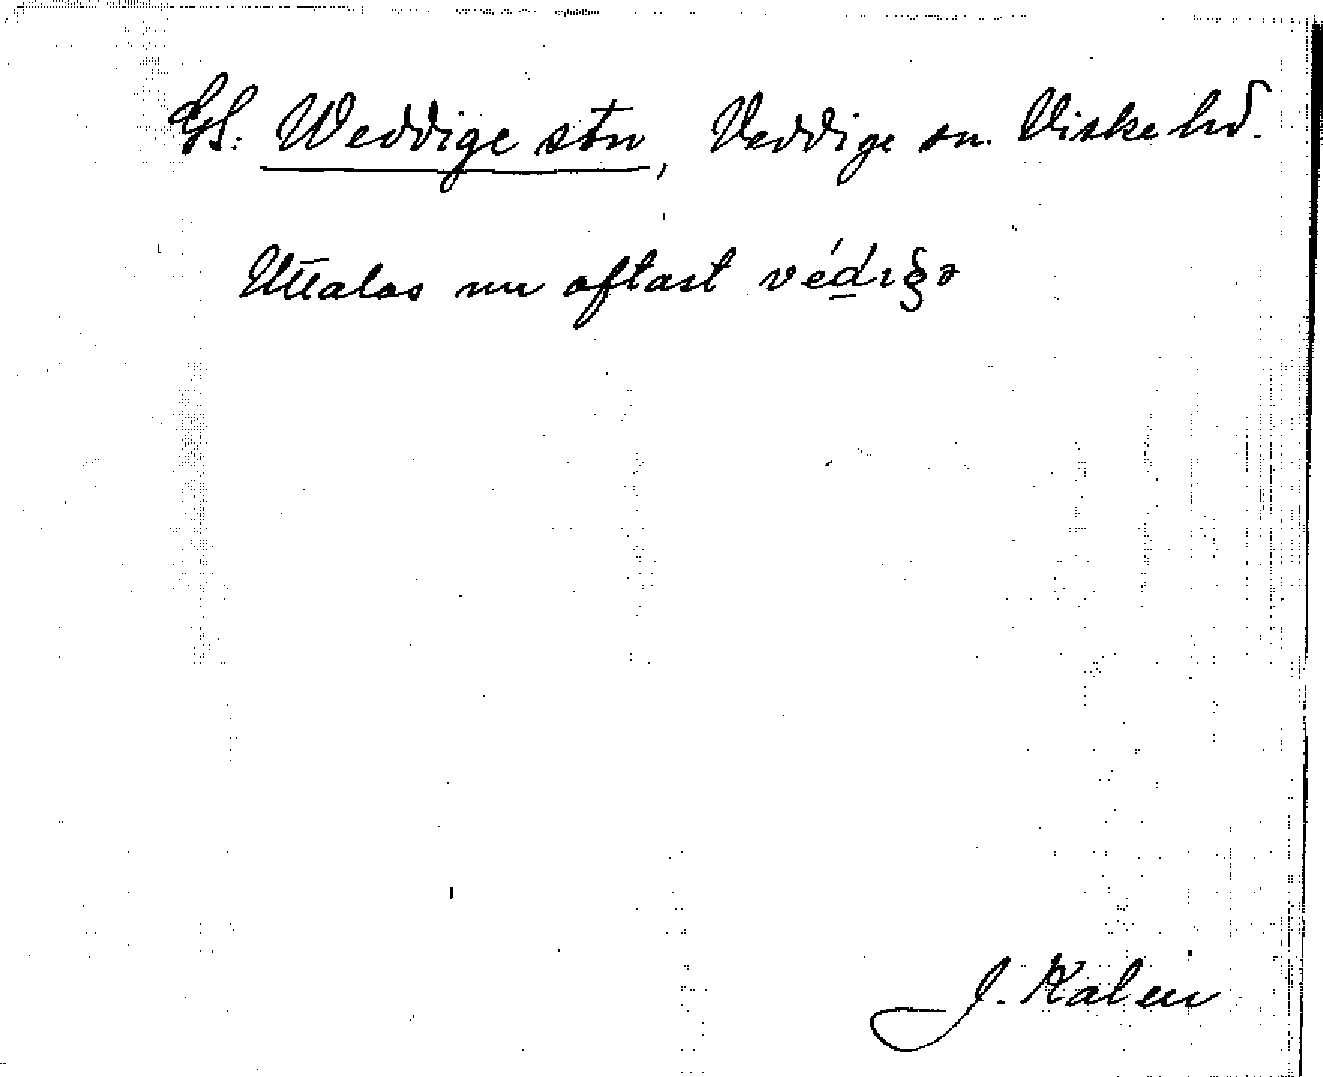 GS. Weddige stn, Veddige sn. Viske hd.
Uttalas nu oftast
J. Kalén